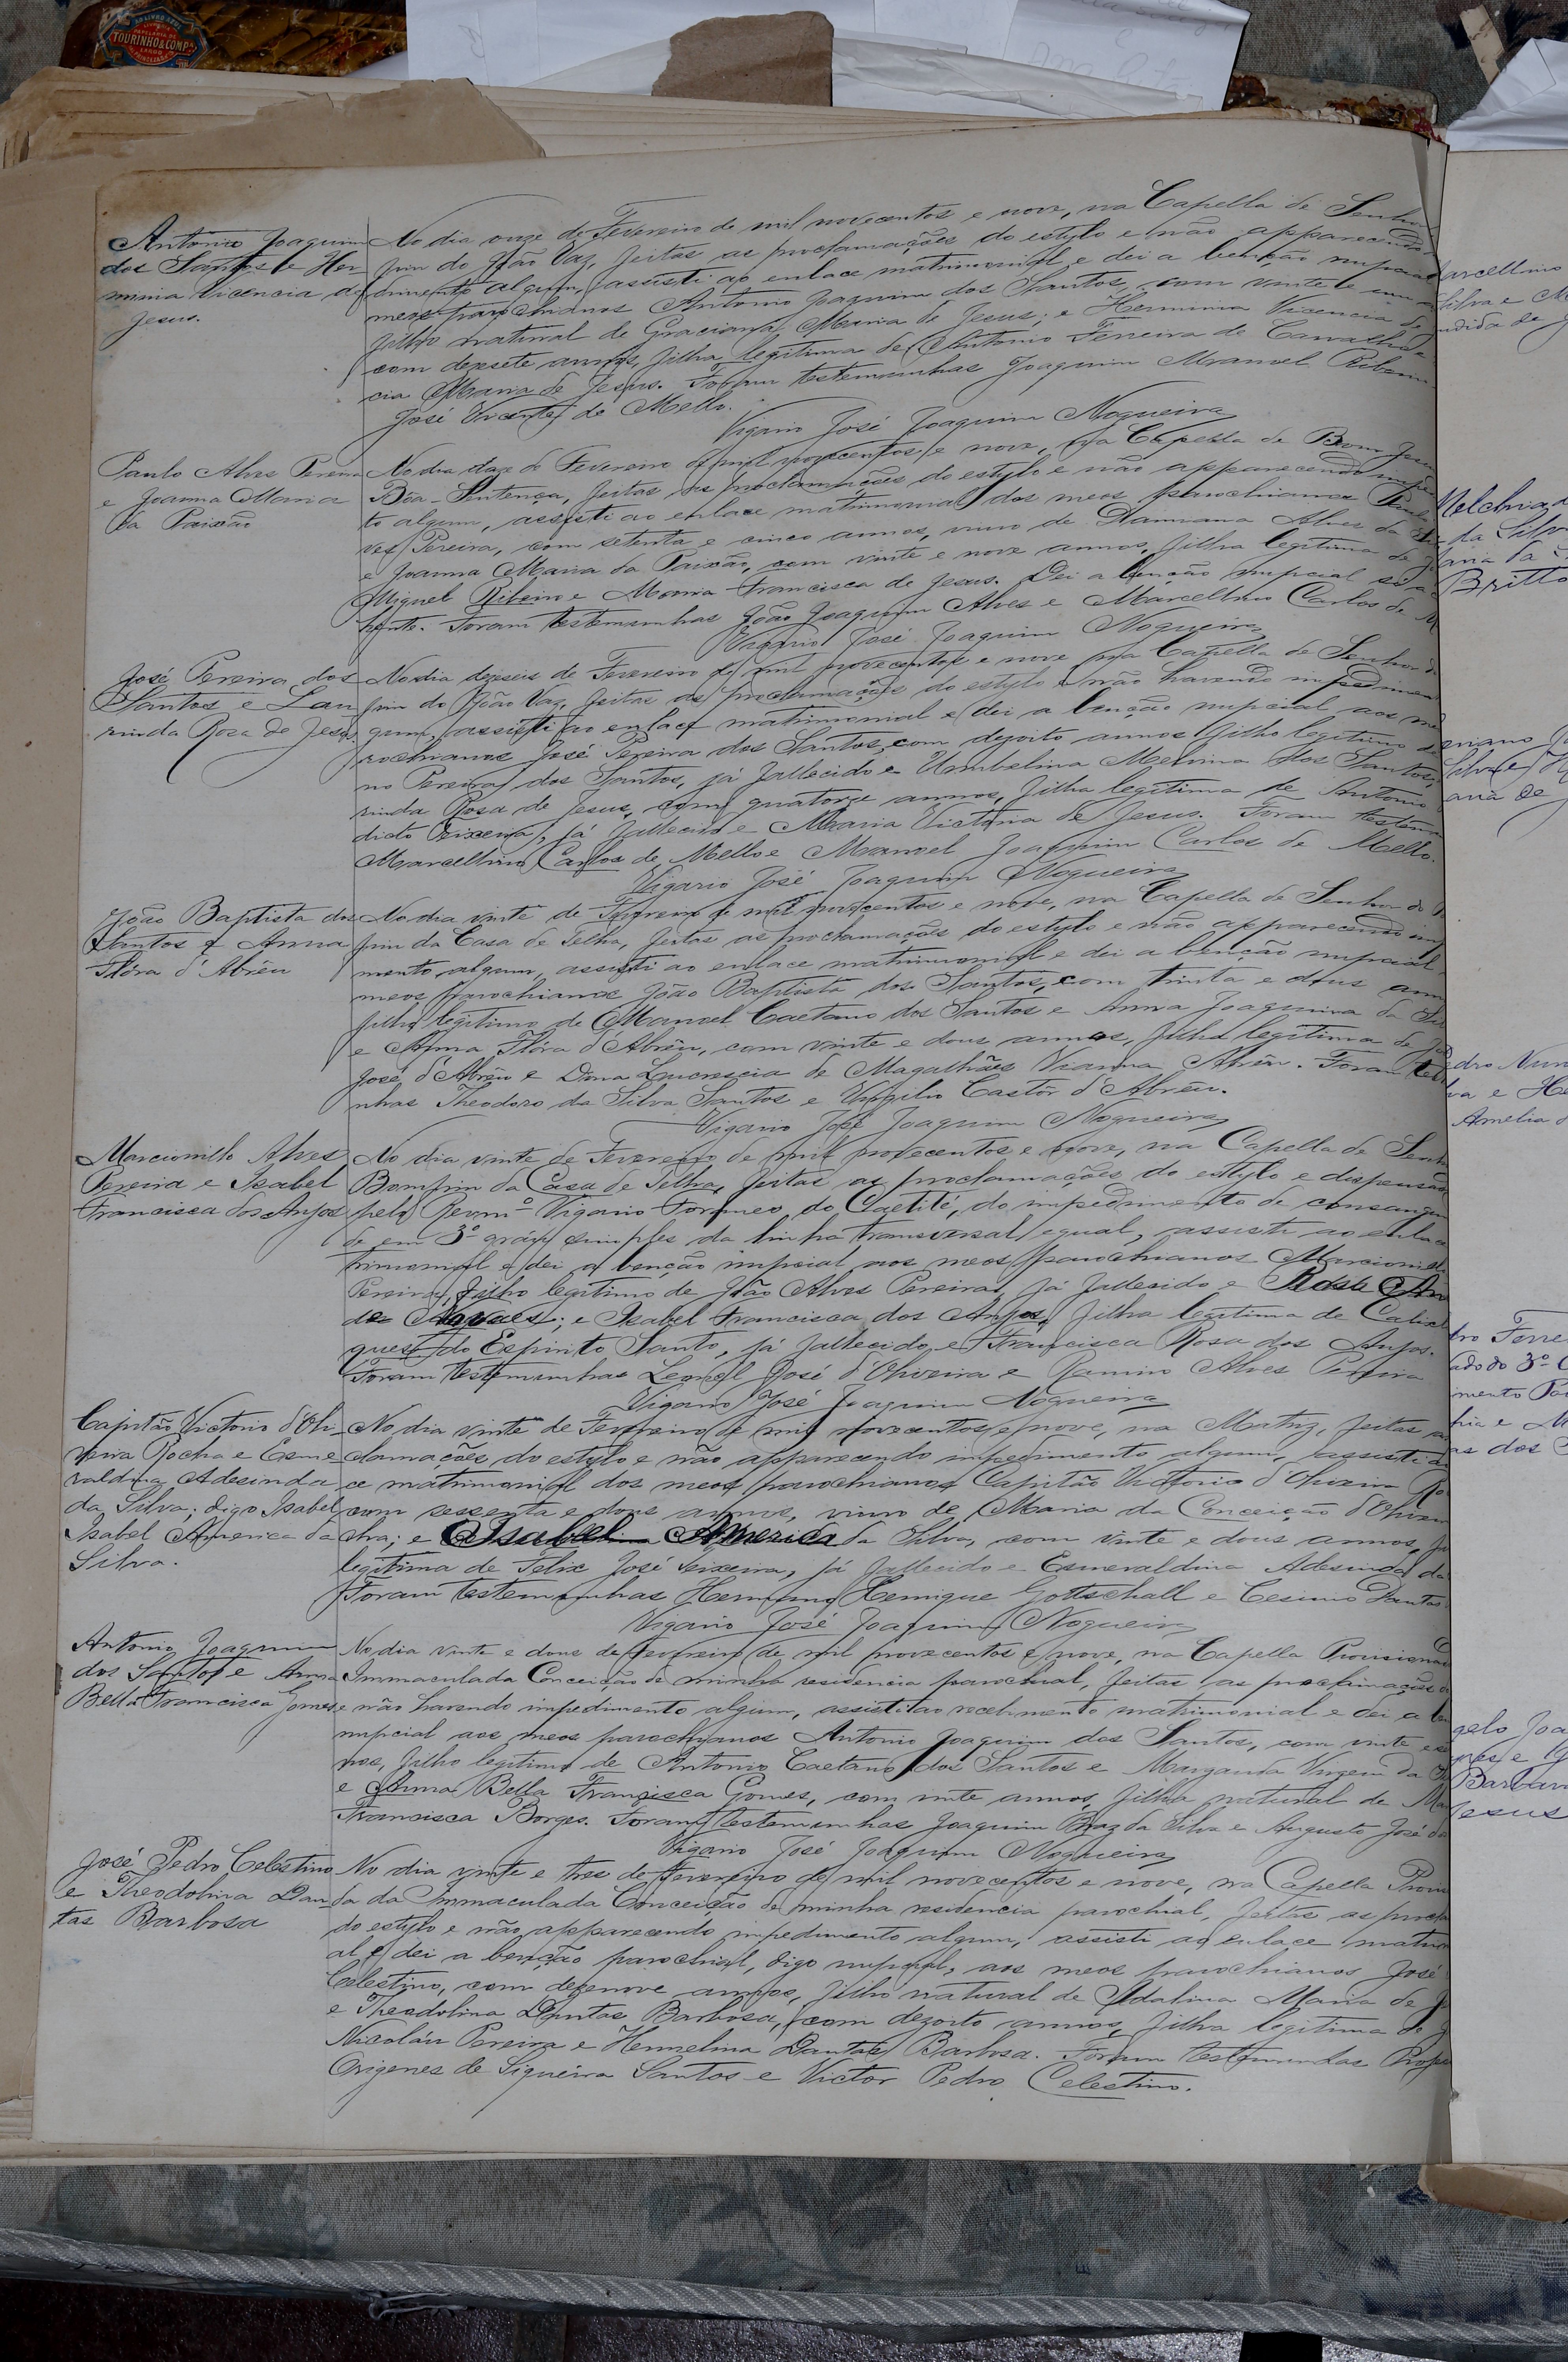 TOURINHO & COMPA
Antonio Joaquim
dos Santos e Her
minia Vicencia de
Jesus.
No dia onze de Fevereiro de mil novecentos e nove, na Capella de Senhor
fim do João Vaz, feitas as proclamações do estylo e não apparecendo
dimento algum, assisti ao enlace matrimonial e dei a benção nupcial
meos parochianos Antonio Joaquim dos Santos, com vinte e um
filho natural de Graciana Maria de Jesus; e Herminia Vicencia de
com desesete annos, filha legitima de Antonio Ferreira de Carvalho e
cia Maria de Jesus. Foram testemunhas Joaquim Manoel Ribeiro
José Vicente de Mello.
Vigario José Joaquim Nogueira
Paulo Alves Pereira
e Joanna Maria
da Paixão
No dia doze de Fevereiro de mil novecentos e nove, na Capella de Bom Jesus
Bôa-Sentença, feitas as proclamações do estylo e não apparecendo impe
to algum, assisti ao enlace matrimonial dos meos parochianos Paulo
ves Pereira, com setenta e cinco annos, viuvo de Damiana Alves da
e Joanna Maria da Paixão, com vinte e nove annos, filha legitima de
Miguel Ribeiro e Maria Francisca de Jesus. Dei a benção nupcial só a
hente. Foram testemunhas João Joaquim Alves e Marcellino Carlos de M
Vigario José Joaquim Nogueira
José Pereira dos
Santos e Lau
rinda Rosa de Jesus.
No dia deseseis de Fevereiro de mil novecentos e nove na Capella de Senhor do
fim do João Vaz, feitas as proclamações do estylo e não havendo impedimen
gum, assisti ao enlace matrimonial e dei a benção nupcial aos me
rochianos José Pereira dos Santos, com dezoito annos filho legitimo de
no Pereira dos Santos, já fallecido e Umbelina Melina dos Santos,
rinda Rosa de Jesus, com quatorze annos, filha legitima de Antonio
dicto Teixeira, já fallecido e Maria Victoria de Jesus. Foram testemu
Marcellino Carlos de Mello e Manoel Joaquim Carlos de Mello.
Vigario José Joaquim Nogueira
João Baptista dos
Santos e Anna
Flóra d'Abrêu
No dia vinte de Fevereiro de mil novecentos e nove, na Capella de Senhor do B
fim da Casa de Telha, feitas as proclamações do estylo e não apparecendo im
mento algum, assisti ao enlace matrimonial e dei a benção nupcial
meos parochianos João Baptista dos Santos, com trinta e dous ann
filho legitimo de Manoel Caetano dos Santos e Anna Joaquina da Si
e Anna Flóra d'Abrêu, com vinte e dous annos, filha legitima de
José d'Abrêu e Dona Lucrescia de Magalhães Vianna Abrêu. Foram tes
nhas Theodoro da Silva Santos e Virgilio Castôr d'Abrêu.
Vigario José Joaquim Nogueira
Marcionillo Alves
Pereira e Isabel
Francisca dos Anjos
No dia vinte de Fevereiro de mil novecentos e nove, na Capella de Senh
Bomfim da Casa de Telha, feitas as proclamações do estylo e dispensad
pelo Revmº Vigario Foraneo do Caetité, do impedimento de consangui
de em 3º gráu simples da linha transversal egual, assisti ao enlace
trimonial e dei a benção nupcial aos meos parochianos Marcionillo
Pereira, filho legitimo de João Alves Pereira, já fallecido e Rosa
de Novaes; e Isabel Francisca dos Anjos, filha legitima de
ques do Espirito Santo, já fallecido e Francisca Rosa dos Anjos.
Foram testemunhas Leonel José d'Oliveira e Ramiro Alves Pereira
Vigario José Joaquim Nogueira
Capitão Victorio d'Oli-
veira Rocha e Esme
raldina Adesinda
da Silva; digo, Isabel
Isabel America da
Silva.
No dia vinte de Fevereiro de mil novecentos e nove, na Matriz, feitas as
clamações do estylo e não apparecendo impedimento algum, assisti ao
ce matrimonial dos meos parochianos Capitão Victorio d'Oliveira Ro
com sessenta e dous annos, viuvo de Maria da Conceição d'Olivei
cha; e Isabel America da Silva, com vinte e dous annos, fi
legitima de Felix José Teixeira, já fallecido e Esmeraldina Adesinda da
Foram testemunhas Hermano Henrique Gottschall e Cesino Dantas
Vigario José Joaquim Nogueira
Antonio Joaquim
dos Santos e Anna
Bella Francisca Gomes
No dia vinte e dous de Fevereiro de mil novecentos e nove, na Capella Provisionad
Immaculada Conceição de minha residencia parochial, feitas as proclamações
e não havendo impedimento algum, assisti ao recebimento matrimonial e dei a ben
nupcial aos meos parochianos Antonio Joaquim dos Santos, com vinte e
nos, filho legitimo de Antonio Caetano dos Santos e Margarida Virgem da
e Anna Bella Francisca Gomes, com vinte annos, filha natural de Ma
Francisca Borges. Foram testemunhas Joaquim Braz da Silva e Augusto José da
Vigario José Joaquim Nogueira
José Pedro Celestino
e Theodolina Dan-
tas Barbosa
No dia vinte e tres de Fevereiro de mil novecentos e nove, na Capella Provi
da da Immaculada Conceição de minha residencia parochial, feitas as procla
do estylo e não apparecendo impedimento algum, assisti ao enlace matrim
al e dei a benção parochial, digo nupcial, aos meos parochianos José
Celestino, com dezenove annos, filho natural de Idalina Maria de
e Theodolina Dantas Barbosa, com dezoito annos, filha legitima de
Nicoláu Pereira e Hermelina Dantas Barbosa. Foram testemunhas
Origenes de Siqueira Santos e Victor Pedro Celestino.
arcellino
Silva e M
ndida de J
Melchiad
da Silv
aria da
Britto
Silva e
aria de
edro Nun
va e He
Amelia d
ro Ferre
ado do 3º
mento Pa
as dos S
gelo Joa
Barbar
Jesus